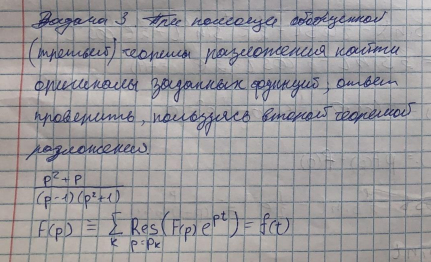 Задача 3 При помощи обобщенной
(третьей) теоремы разложения найти
оригиналы заданных функций, ответ
проверить, пользуясь второй теоремой
разложения.
p²+p
(p-1)(p²+1)
F(p) = ∑ Res (F(p) e^{pt}) = f(t)
k p=pₖ